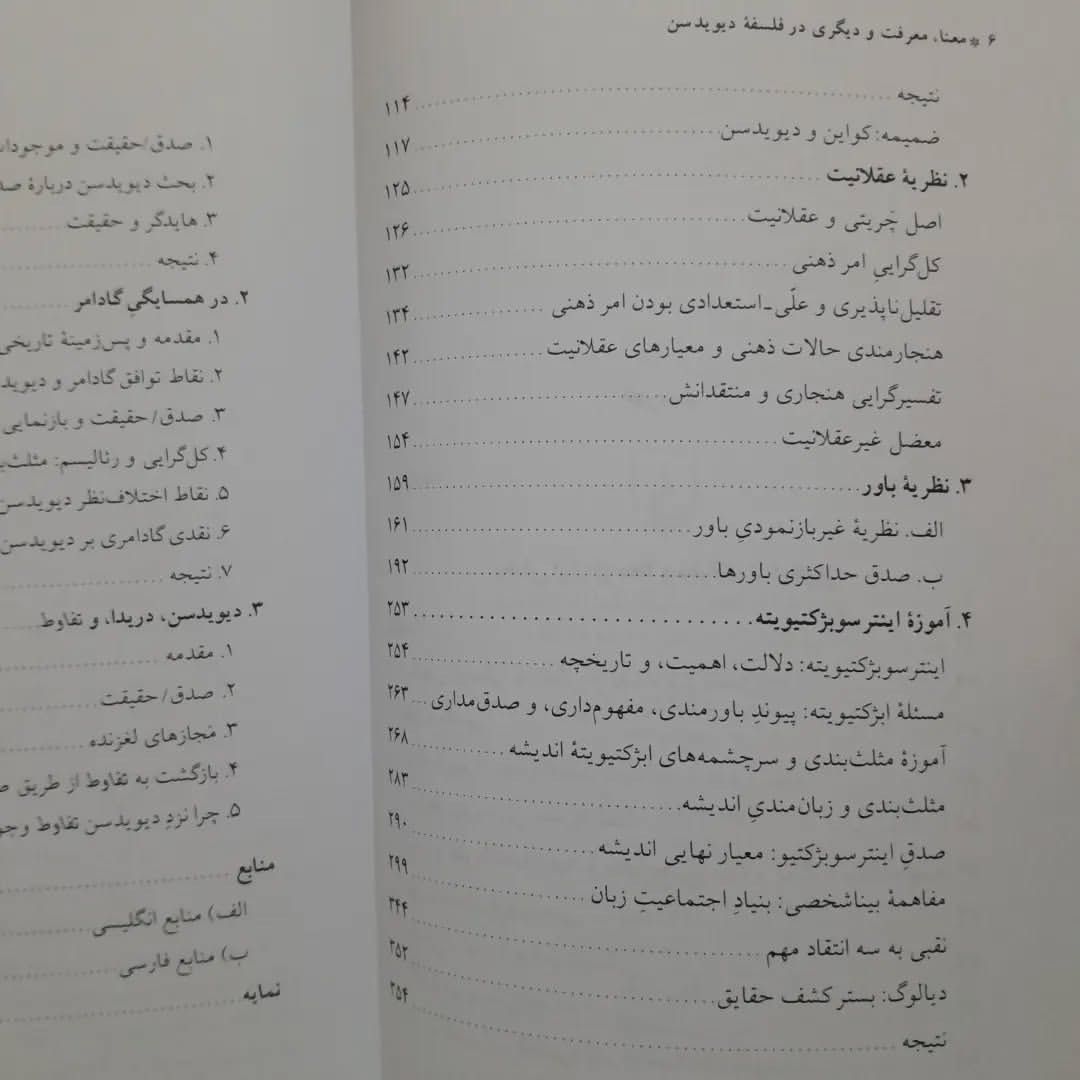 ۶ * معنا، معرفت و دیگری در فلسفهٔ دیویدسن
نتیجه ........ ۱۱۴
ضمیمه: کواین و دیویدسن ........ ۱۱۷
۲. نظریهٔ عقلانیت ........ ۱۲۵
اصل چَریتی و عقلانیت ........ ۱۲۶
کل‌گراییِ امر ذهنی ........ ۱۳۲
تقلیل‌ناپذیری و علّی-استعدادی بودن امر ذهنی ........ ۱۳۴
هنجارمندی حالات ذهنی و معیارهای عقلانیت ........ ۱۴۲
تفسیرگرایی هنجاری و منتقدانش ........ ۱۴۷
معضل غیرعقلانیت ........ ۱۵۴
۳. نظریهٔ باور ........ ۱۵۹
الف. نظریهٔ غیربازنمودیِ باور ........ ۱۶۱
ب. صدق حداکثری باورها ........ ۱۹۲
۴. آموزهٔ اینترسوبژکتیویته ........ ۲۵۳
اینترسوبژکتیویته: دلالت، اهمیت، و تاریخچه ........ ۲۵۴
مسئلهٔ ابژکتیویته: پیوندِ باورمندی، مفهوم‌داری، و صدق‌مداری ... ۲۶۳
آموزهٔ مثلث‌بندی و سرچشمه‌های ابژکتیویتهٔ اندیشه ........ ۲۶۸
مثلث‌بندی و زبان‌مندیِ اندیشه ........ ۲۸۳
صدقِ اینترسوبژکتیو: معیار نهایی اندیشه ........ ۲۹۰
مفاهمهٔ بیناشخصی: بنیادِ اجتماعیتِ زبان ........ ۲۹۹
نقبی به سه انتقاد مهم ........ ۳۴۴
دیالوگ: بستر کشف حقایق ........ ۳۵۲
نتیجه ........ ۳۵۴
۱. صدق/حقیقت و
۲. بحث دیویدسن دربارهٔ
۳. هایدگر و حقیقت ........
۴. نتیجه ........
۲. در همسایگیِ گادامر ........
۱. مقدمه و پس‌زمینهٔ تاریخی
۲. نقاط توافق گادامر و
۳. صدق/حقیقت و بازنمایی
۴. کل‌گرایی و رئالیسم:
۵. نقاط اختلاف‌نظر دیویدسن
۶. نقدی گادامری بر دیویدسن
۷. نتیجه ........
۳. دیویدسن، دریدا، و تفاوط ........
۱. مقدمه ........
۲. صدق/حقیقت ........
۳. مَجازهای لغزنده ........
۴. بازگشت به تفاوط از طریق
۵. چرا نزدِ دیویدسن تفاوط
منابع ........
الف) منابع انگلیسی ........
ب) منابع فارسی ........
نمایه ........